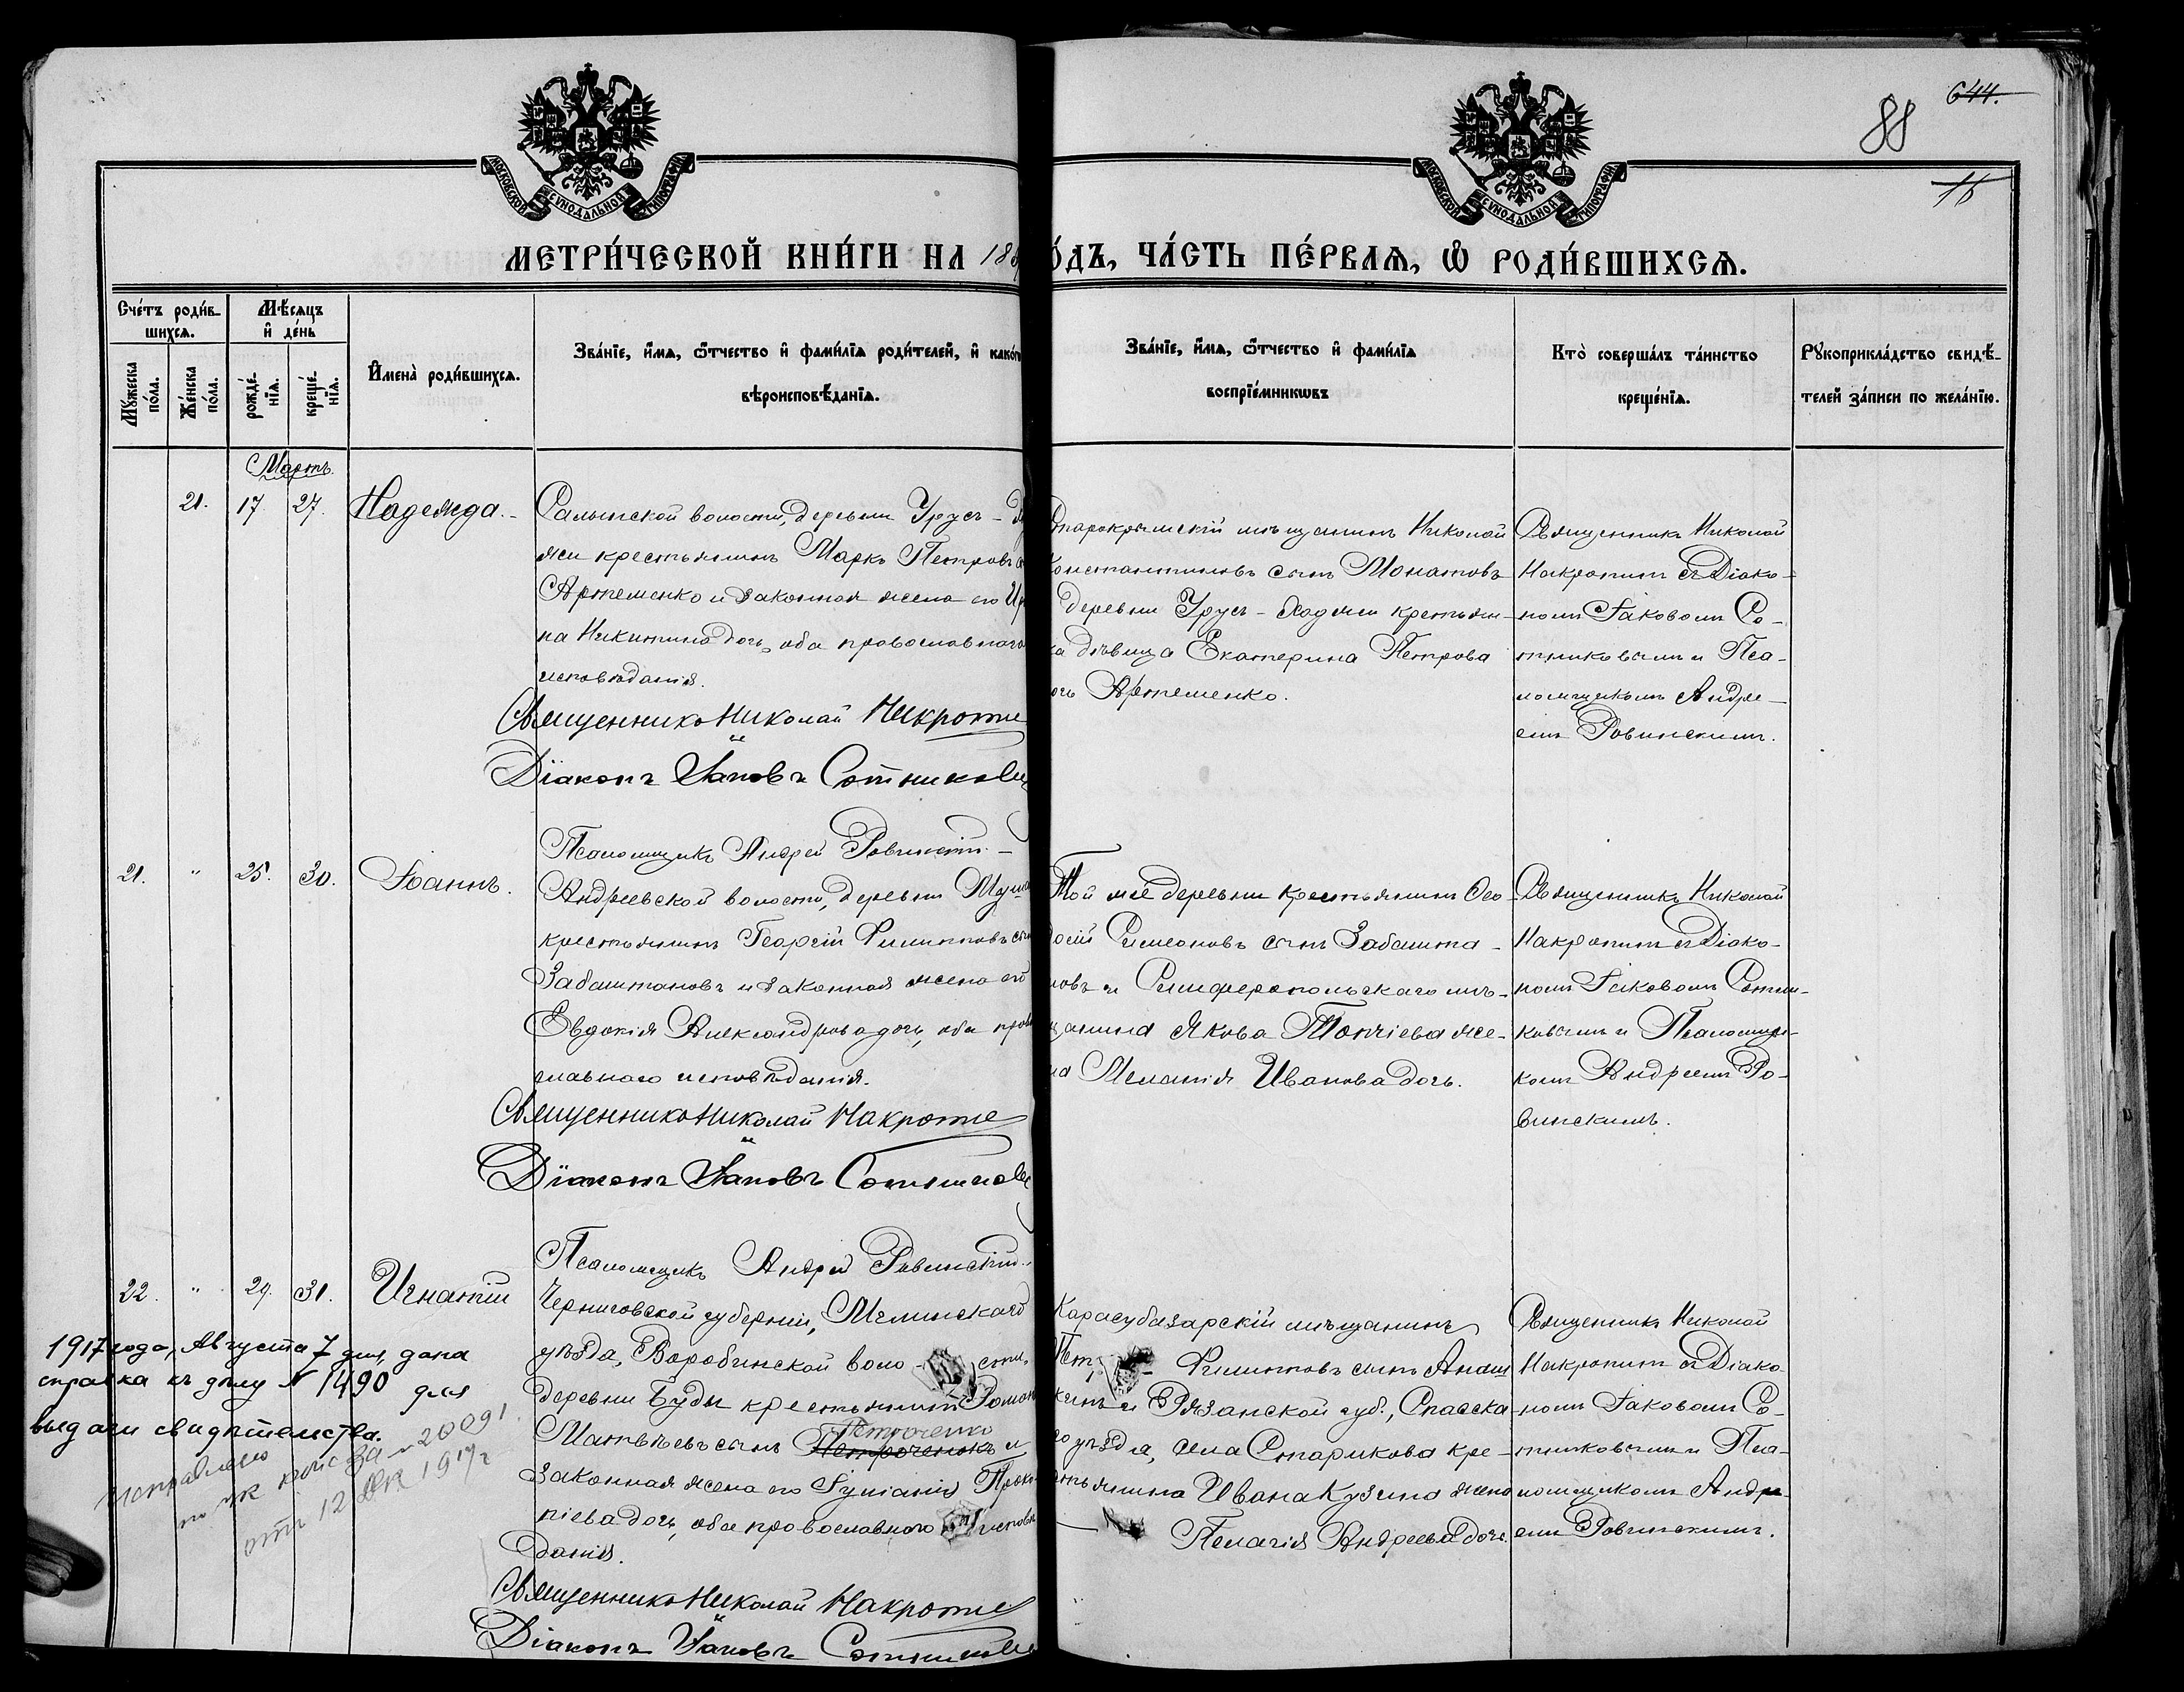 644.
88
16
МОСКОВСКОЙ СѴНОДАЛЬНОЙ ТИПОГРАФІИ
МОСКОВСКОЙ СѴНОДАЛЬНОЙ ТИПОГРАФІИ
МЕТРИ́ЧЕСКОЙ КНИ́ГИ НА 18
О́ДЪ, ЧА́СТЬ ПЕ́РВАѦ, Ѡ҆ РОДИ́ВШИХСѦ.
Сче́тъ роди́в-
шихсѧ.
Мѣ́сѧцъ
и҆ де́нь
Мꙋ́жеска по́ла.
Же́нска по́ла.
рожде́-нїѧ.
креще́-нїѧ.
И҆мена̀ роди́вшихсѧ.
Зва́нїе, и҆́мѧ, ѻ҆́тчество и҆ фами́лїѧ роди́телей, и҆ како́г
вѣроисповѣ́данїѧ.
Зва́нїе, и҆́мѧ, ѻ҆́тчество и҆ фами́лїѧ
воспрїе́мникѡвъ
Кто̀ соверша́лъ та́инство
креще́нїѧ.
Рꙋкоприкла́дство свидѣ́-
телей за́писи по жела́нїю.
Мартъ.
21. 17. 27. Надежда.
Салынской волости, деревни Урусъ-
жи крестьянинъ Маркъ Петровъ
Артеменко и законная жена его Ир
на Никитина дочь, оба православнаго
исповѣданія.
Священникъ Николай Накропи
Діаконъ Іаковъ Сотникови
Псаломщикъ Андрей Ровинскій.
Старокрымскій мѣщанинъ Николай
Константиновъ сынъ Монатовъ
деревни Урусъ-Ходжи крестьян-
ка дѣвица Екатерина Петрова
очь Артеменко.
Священникъ Николай
Накропинъ съ Діако-
номъ Іаковомъ Со-
тниковымъ и Пса-
ломщикомъ Андре-
емъ Ровинскимъ.
21. " 25. 30. Іоаннъ.
Андреевской волости, деревни
крестьянинъ Георгій Филипповъ сын
Забаштановъ и законная жена его
Евдокія Александрова дочь, оба право
славнаго исповѣданія.
Священникъ Николай Накропи
Діаконъ Іаковъ Сотникови
Псаломщикъ Андрей Ровинскій.
Той же деревни крестьянинъ Ѳео-
досій Симеоновъ сынъ Забашта-
новъ и Симферопольскаго мѣ-
щанина Якова Топчіева же-
на Меланія Иванова дочь.
Священникъ Николай
Накропинъ съ Діако-
номъ Іаковомъ Сотни-
ковымъ и Псаломщи-
комъ Андреемъ Ро-
винскимъ.
22. " 29. 31. Игнатій
Черниговской губерніи, Мглинскаго
уѣзда, Воробинской воло-сти,
деревни Буды крестьянинъ Роман
Петроченко
Матвѣевъ сынъ Петроченокъ и
законная жена его Іуліанія Прок
піева дочь, оба православнаго исповѣ
данія.
Священникъ Николай Накропи
Діаконъ Іаковъ Сотникови
Карасубазарскій мѣщанинъ
Пет Филипповъ сынъ Анаш
кинъ и Рязанской губ., Спасска
го уѣзда, села Старикова кре-
стьянина Ивана Кузина жена
Пелагія Андреева дочь.
Священникъ Николай
Накропинъ съ Діако
номъ Іаковомъ Со-
тниковымъ и Пса-
ломщикомъ Андре-
емъ Ровинскимъ.
1917 года, Августа 7 дня, дана
справка къ дѣлу № 1490 для
выдачи свидѣтельства.
исправлено
за № 20091.
отъ 12 1917 г